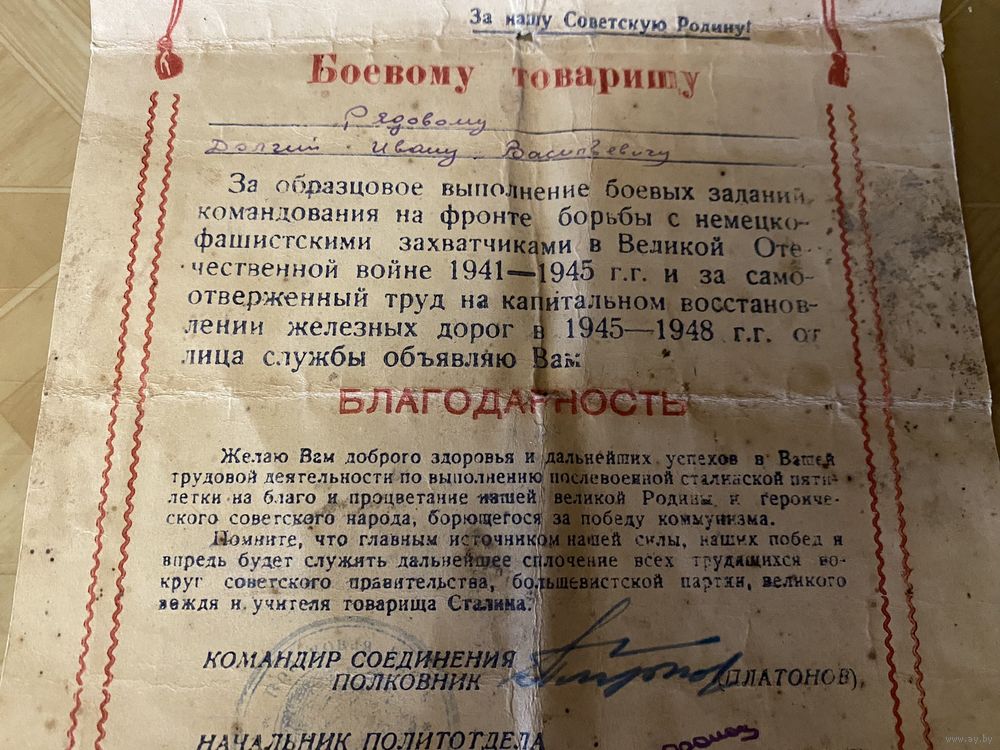 За нашу Советскую Родину!
Боевому товарищу
Рядовому
Долгий Ивану Васильевичу
За образцовое выполнение боевых заданий
командования на фронте борьбы с немецко-
фашистскими захватчиками в Великой Оте
чественной войне 1941—1945 г.г. и за само-
отверженный труд на капитальном восстанов-
лении железных дорог в 1945—1948 г.г. от
лица службы объявляю Вам
БЛАГОДАРНОСТЬ
Желаю Вам доброго здоровья и дальнейших успехов в Вашей
трудовой деятельности по выполнению послевоенной сталинской пяти-
летки на благо и процветание нашей великой Родины и героиче-
ского советского народа, борющегося за победу коммунизма.
Помните, что главным источником нашей силы, наших побед и
впредь будет служить дальнейшее сплочение всех трудящихся во-
круг советского правительства, большевистской партии, великого
вождя и учителя товарища Сталина.
КОМАНДИР СОЕДИНЕНИЯ
ПОЛКОВНИК (ПЛАТОНОВ)
НАЧАЛЬНИК ПОЛИТОТДЕЛА
www.ay.by